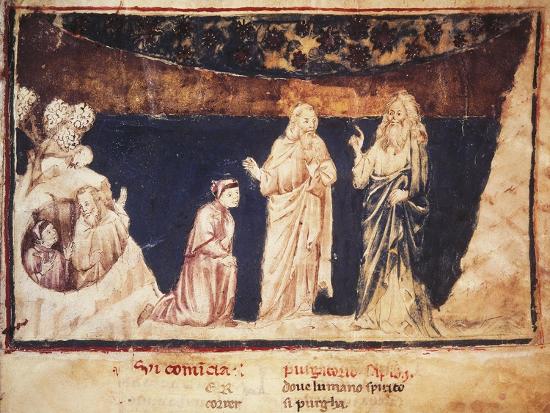 Qui comīcia purgatorio
ER doue lumano spirito
correr si purgha.